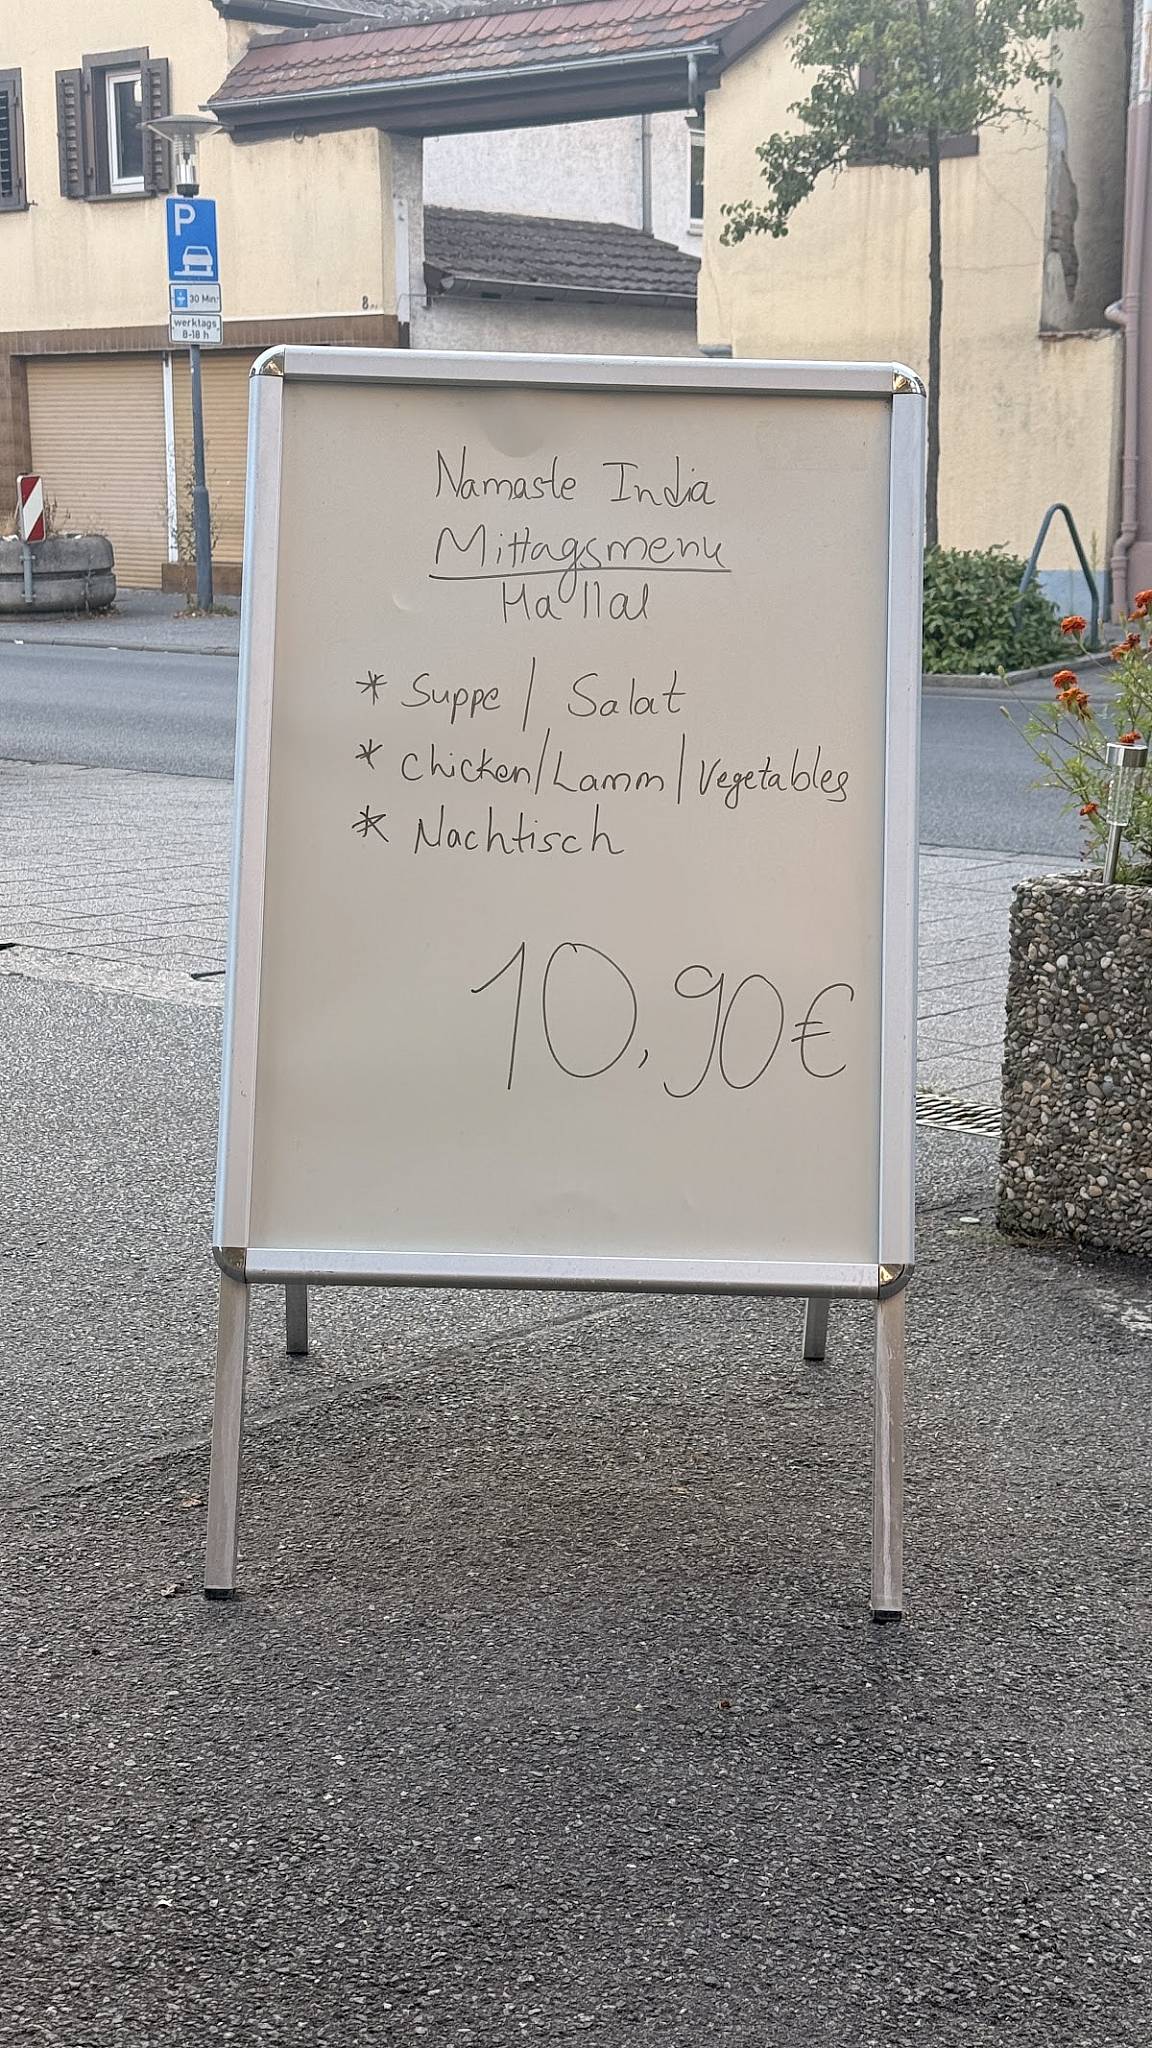 P
30 Min.
werktags
8-18 h
8
Namaste India
Mittagsmenu
Hallal
* Suppe / Salat
* Chicken/Lamm/Vegetables
* Nachtisch
10,90€